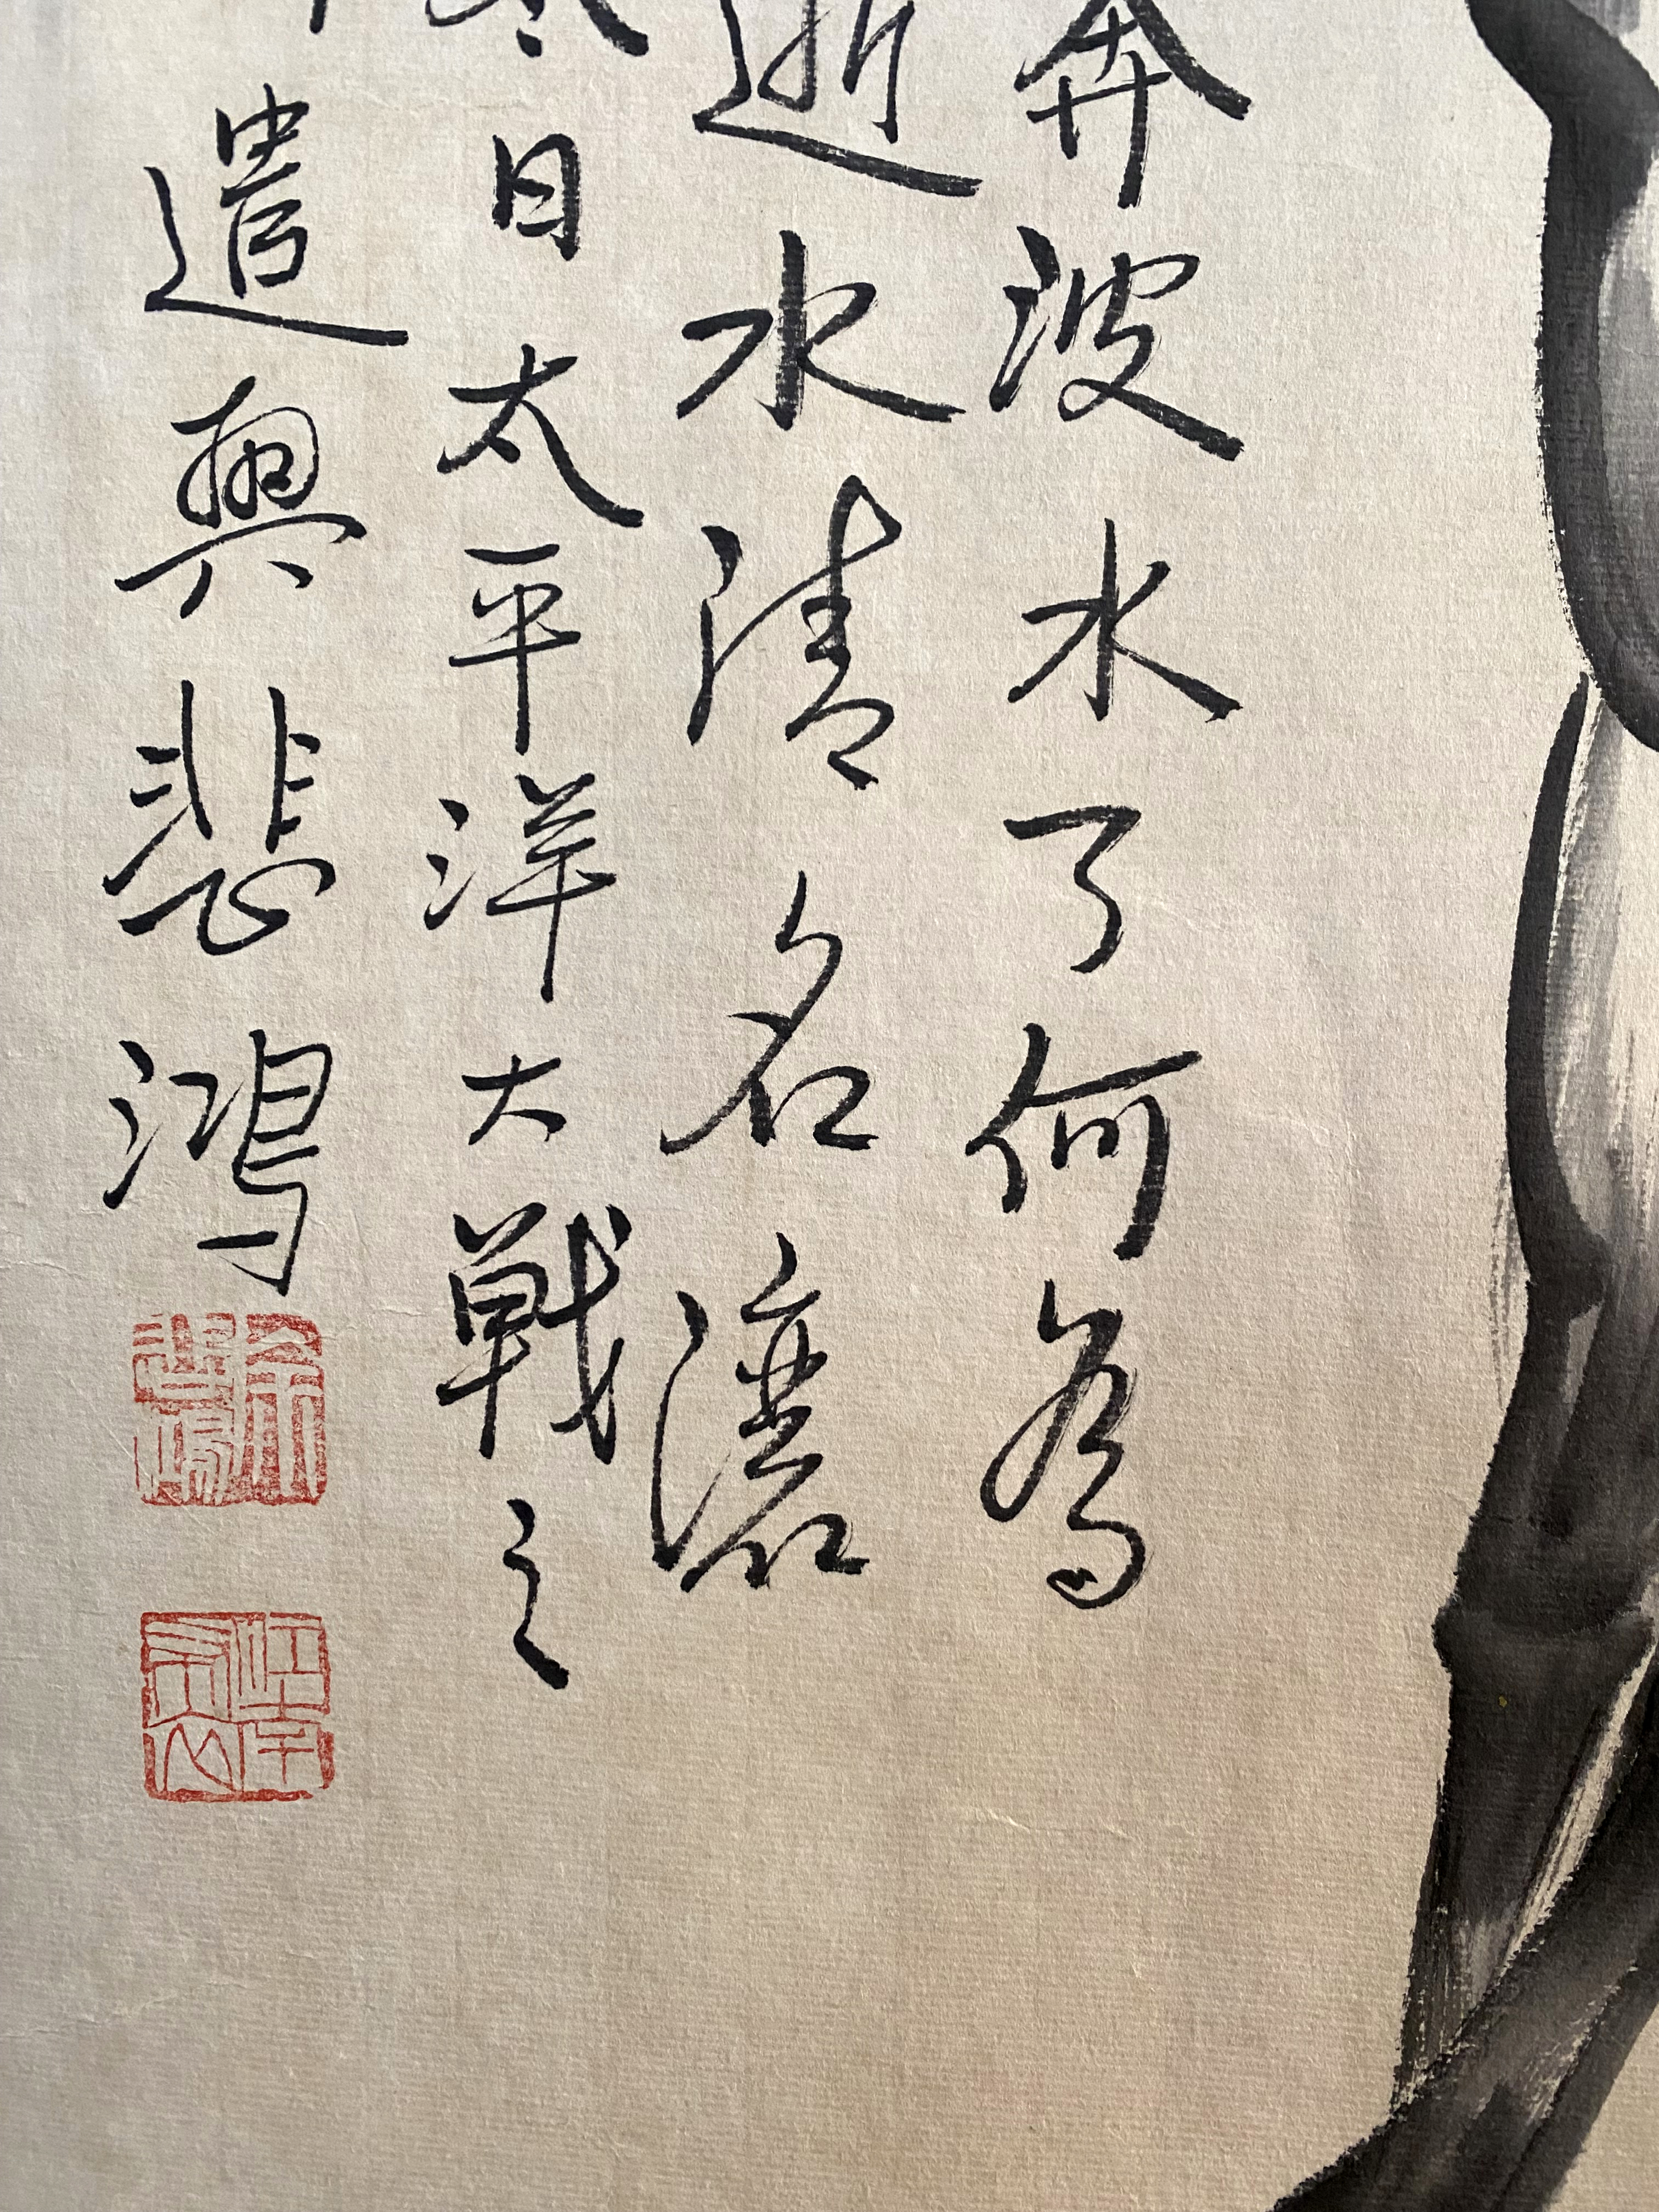 奔波水了何為
逝水清名濡
冬日太平洋大戰之
遣興悲鴻
徐悲鴻
江南布衣